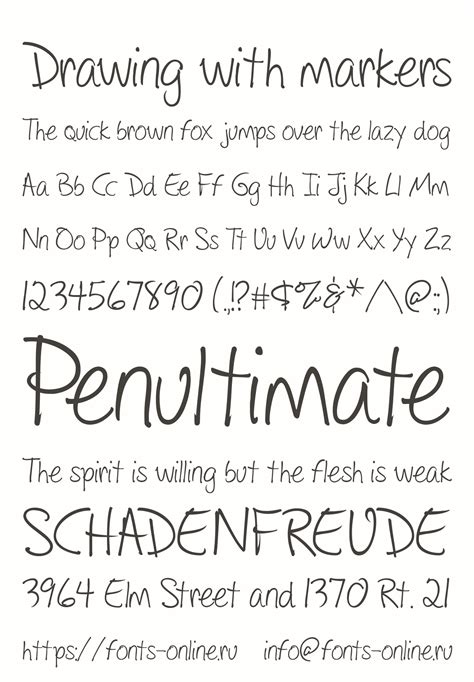 Drawing with markers
The quick brown fox jumps over the lazy dog
Aa Bb Cc Dd Ee Ff Gg Hh Ii Jj Kk Ll Mm
Nn Oo Pp Qq Rr Ss Tt Uu Vv Ww Xx Yy Zz
1234567890 (.,!?#$%&*/\@:;)
Penultimate
The spirit is willing but the flesh is weak
SCHADENFREUDE
3964 Elm Street and 1370 Rt. 21
https://fonts-online.ru info@fonts-online.ru